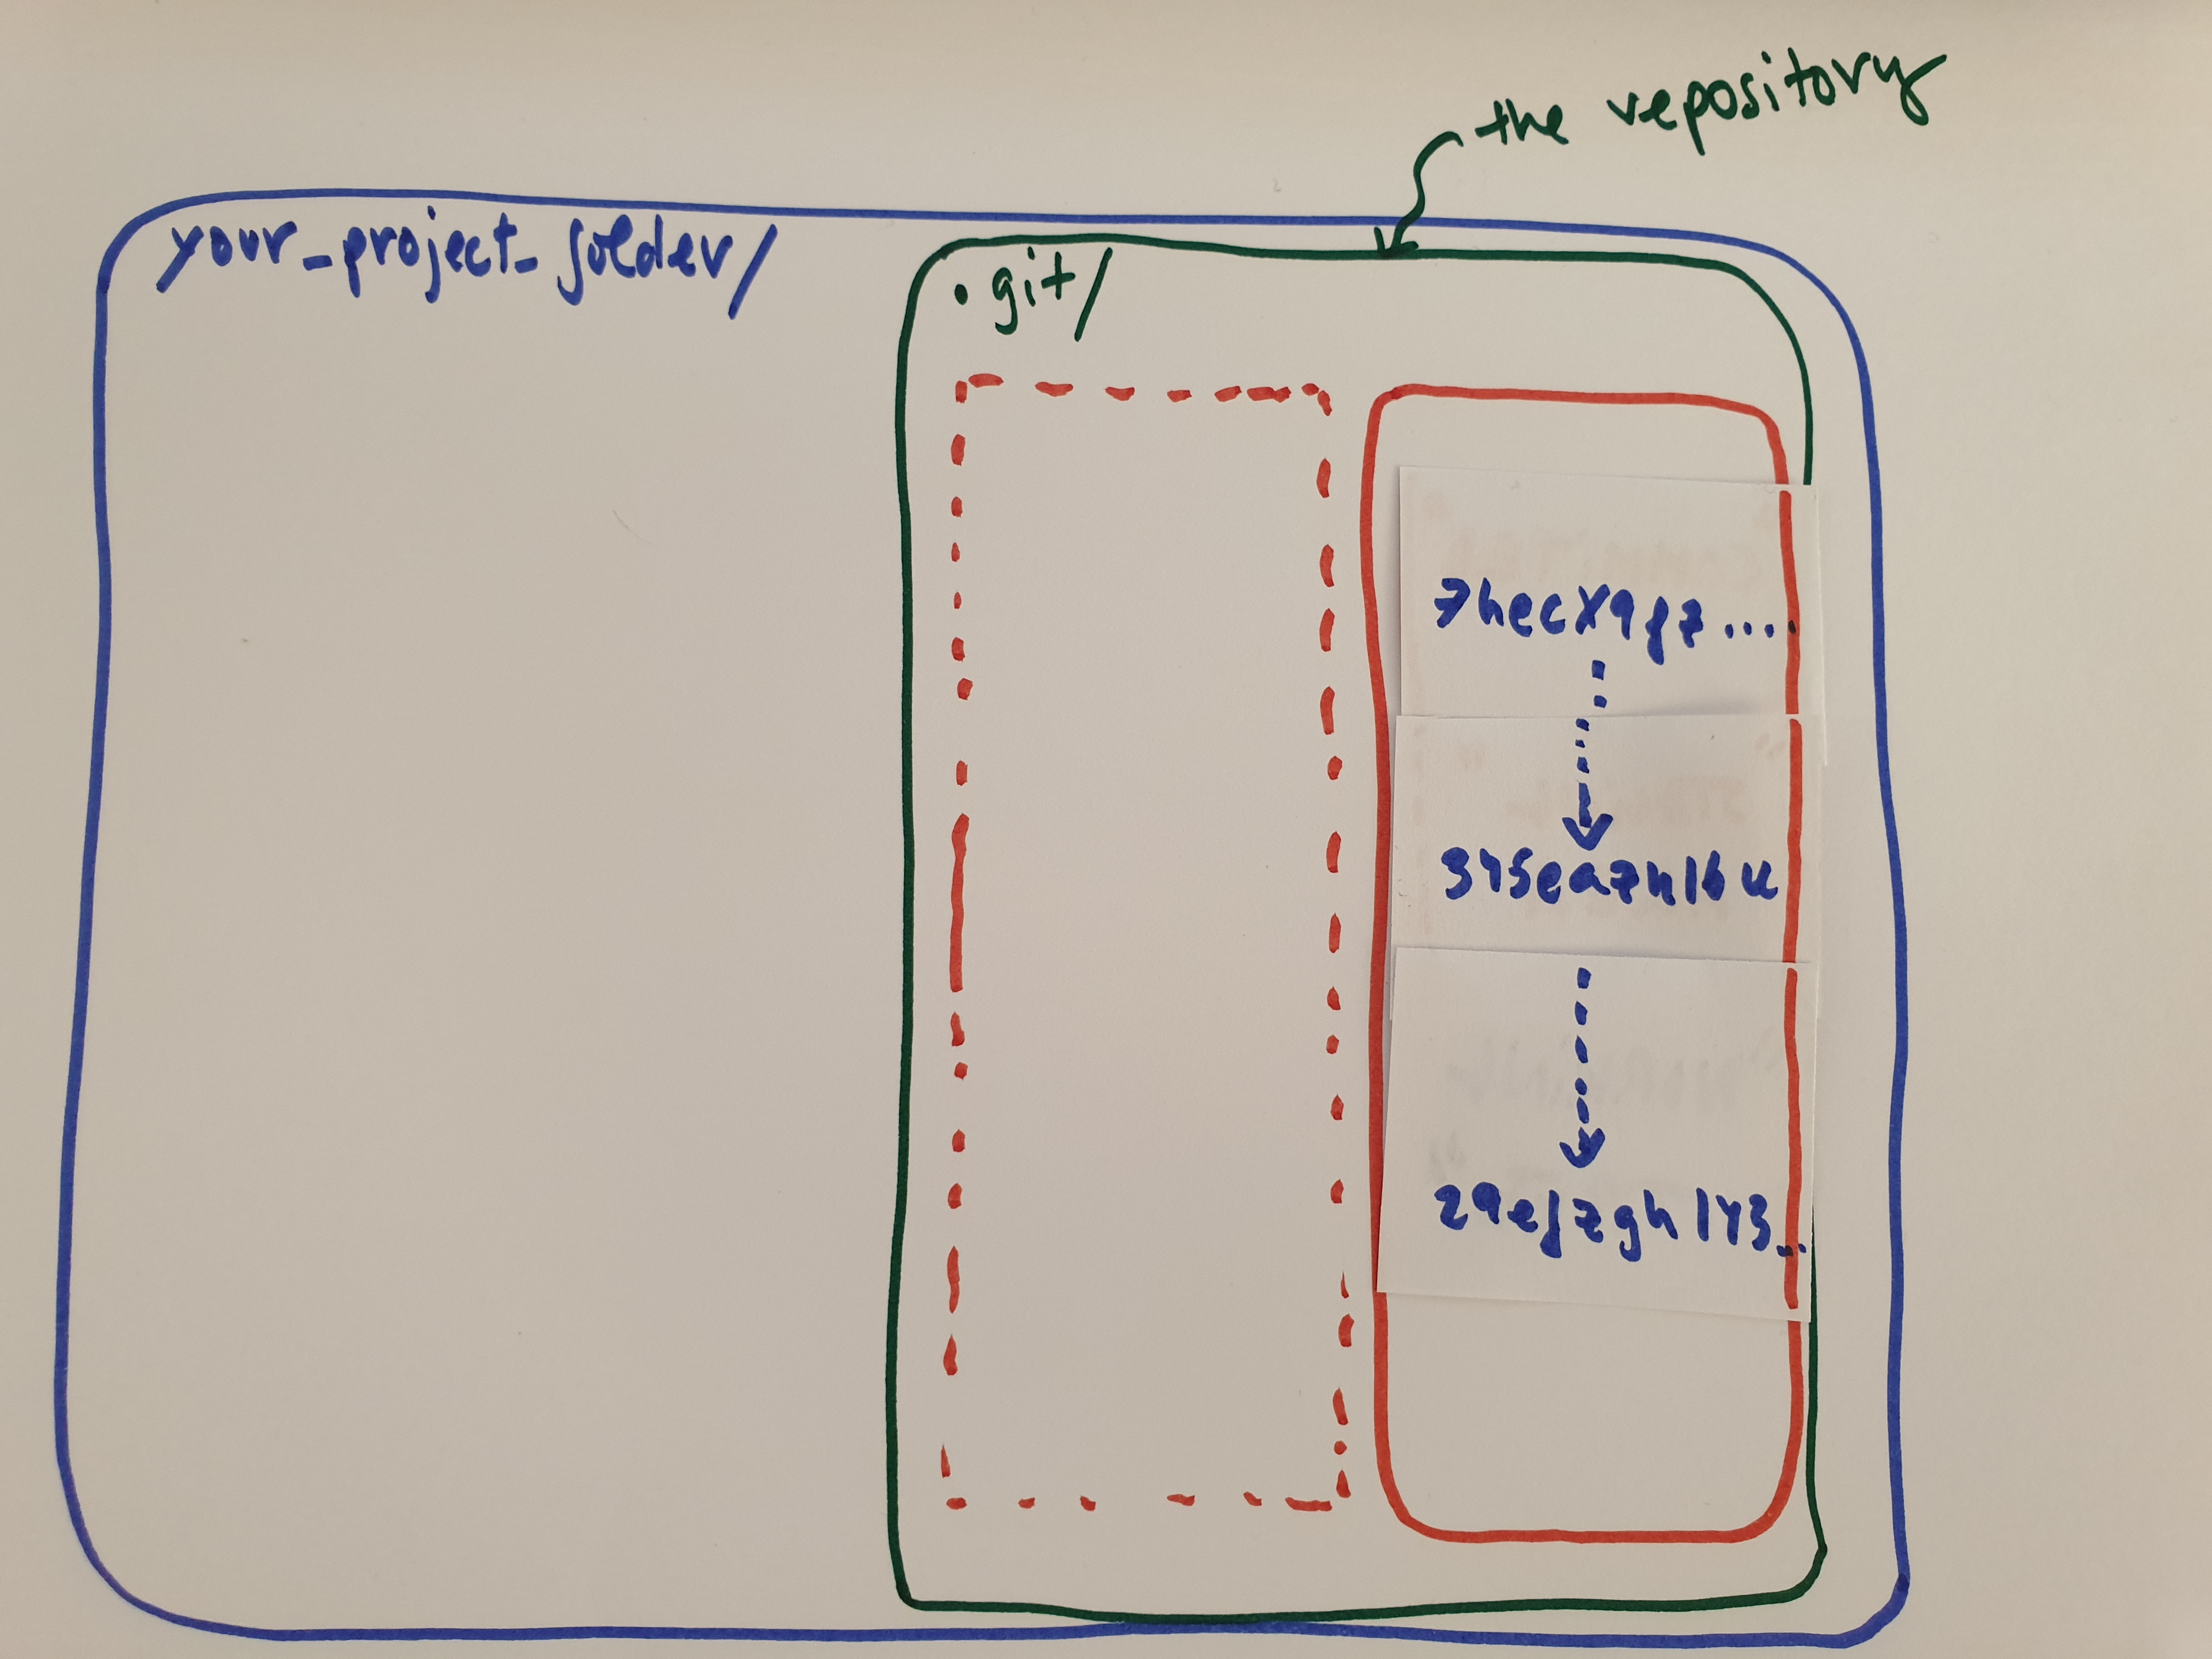 the repository
your_project_folder/
.git/
7hecX9fz....
345eazh16u
29efzgh143...